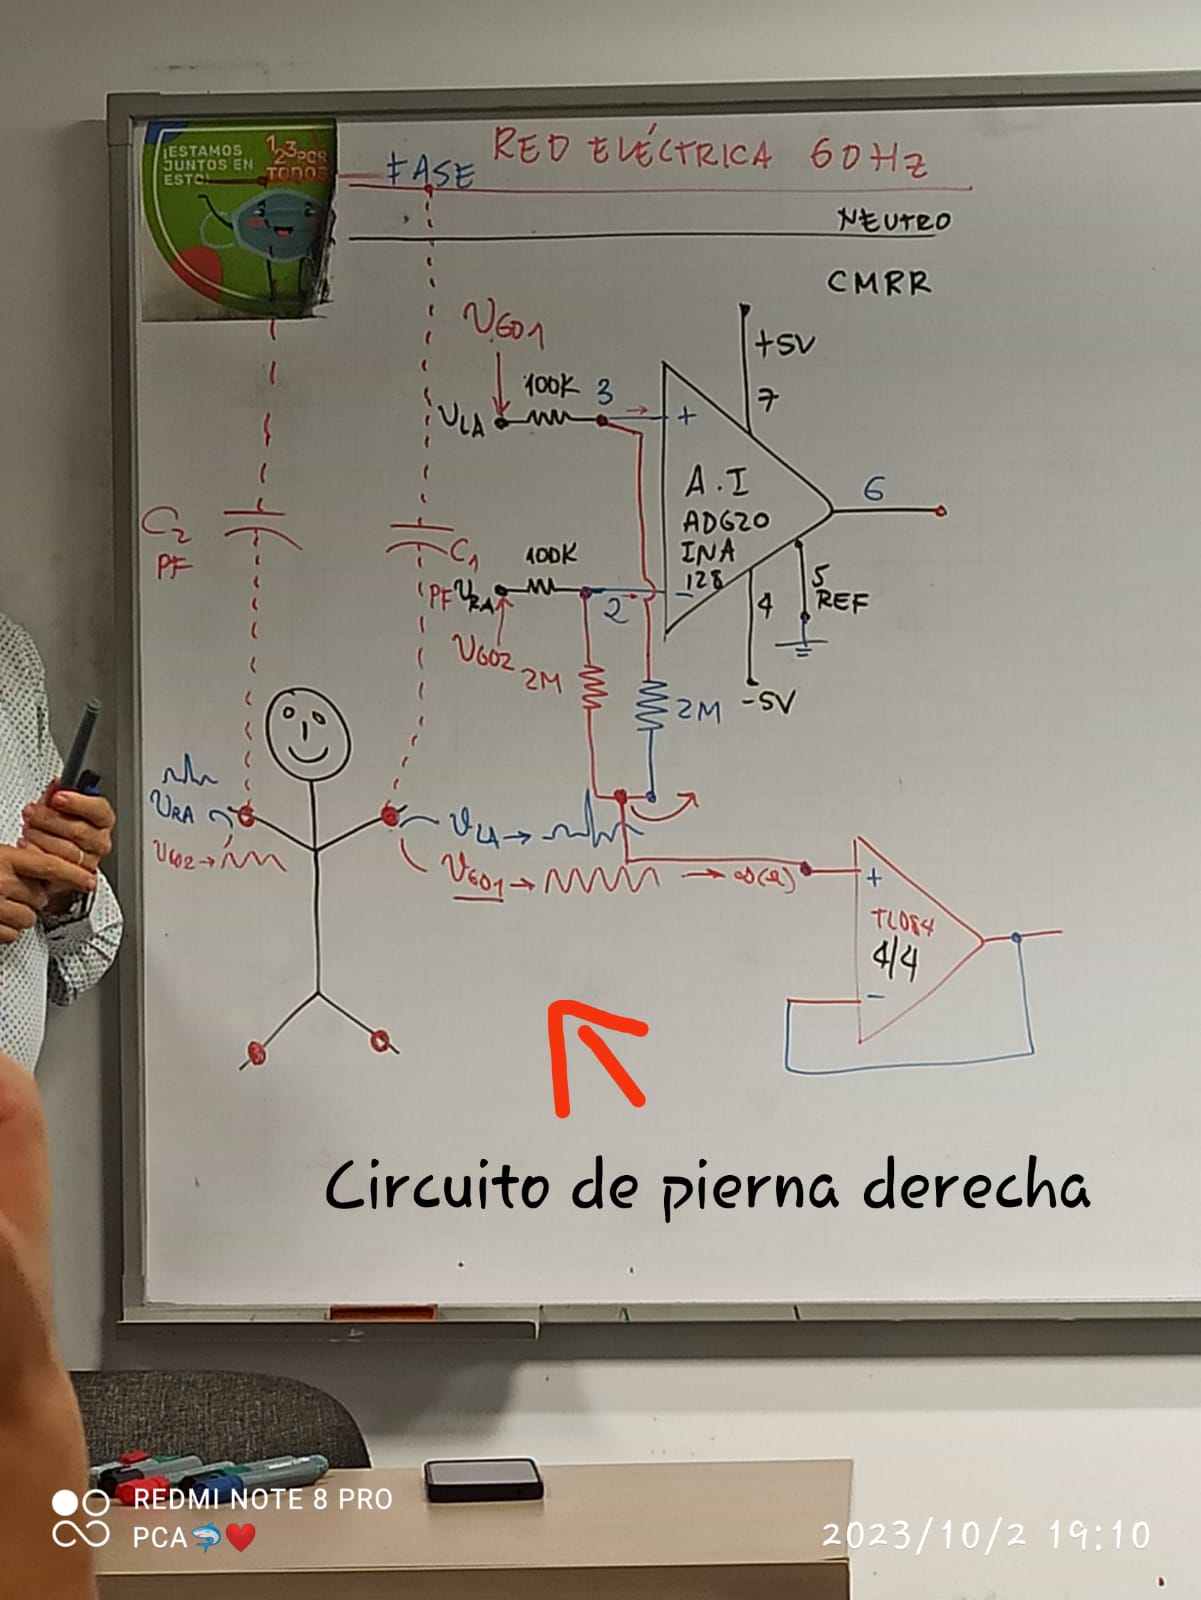 ¡ESTAMOS
JUNTOS EN
ESTO!
123 POR
TODOS
FASE
RED ELÉCTRICA 60Hz
NEUTRO
CMRR
V601
+5V
7
100K
3
VLA
+
A.I
AD620
INA
128
6
C2
PF
C1
PF
100K
VRA
2
-
V602
4
5
REF
2M
2M
-5V
VRA
VLA →
V602 →
V601 →
→ ∞(Ω)
+
TL084
4/4
-
Circuito de pierna derecha
REDMI NOTE 8 PRO
PCA🦈❤️
2023/10/2 19:10